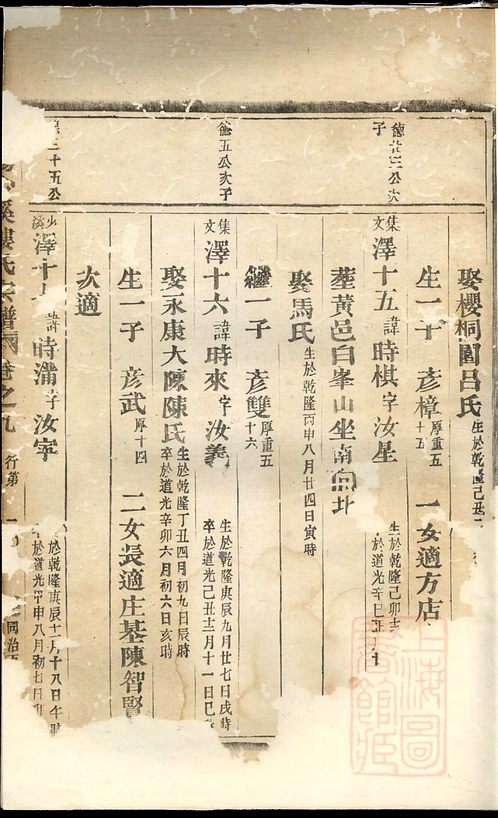 德廿三公次子
娶櫻桐園呂氏 生於乾隆己丑
生一子 彦樟 厚重五十五 一女適方店
集文 澤十五 諱 時棋 字 汝星 生於乾隆己卯 於道光辛巳
塟黃邑白峯山坐南向北
娶馬氏 生於乾隆丙申八月廿四日寅時
五公次子
繼一子 彦雙 厚重五十六
集文 澤十六 諱 時來 字 汝義 生於乾隆庚辰九月廿七日戌時 卒於道光己丑十二月十一日己
娶永康大陳陳氏 生於乾隆丁丑四月初九日辰時 卒於道光辛卯六月初六日亥時
生一子 彦武 厚十四 二女長適庄基陳智賢
次適
二十五公
溪 澤十 諱 時滿 字 汝寜 於乾隆庚辰十一月十八日午時 於道光甲申八月初七
溪樓氏宗譜 卷之九 行第 同治
上海圖書館藏